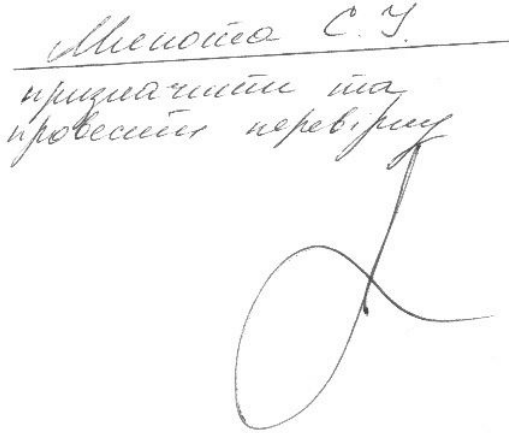 Мепота С. У.
призначити та
провести перевірку